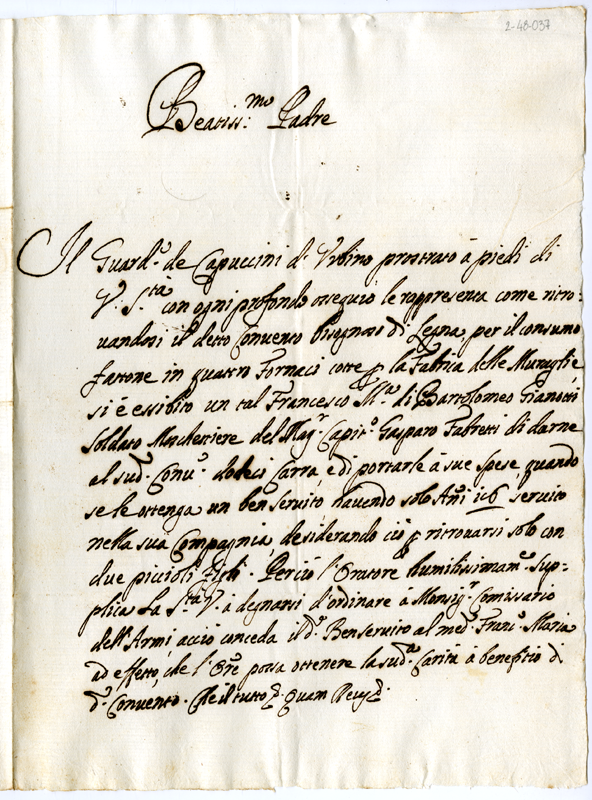 2-48-037
Beatiss:mo Padre
Il Guard.o de Capuccini d' Urbino prostrato à piedi di
V. S.ta con ogni profondo ossequio le rappresenta come ritro-
uandosi il detto Conuento bisognoso di Legna, per il consumo
fattone in quattro Fornaci cotte p la Fabrica delle Muraglie,
si è essibito un tal Francesco M.a di Bartolomeo Gianotti
soldato Moschettiere del Mag.r Capit.o Gasparo Fabretti di darne
al sud.o Conu.o dodeci Carra, e di portarle à sue spese, quando
se le ottenga un ben seruito, hauendo solo Anni seruito
nella sua Compagnia, desiderando ciò p ritrouarsi solo con
due piccioli figli. Perciò l'Oratore humilissimam.e sup-
plica La S.tà V. à degnarsi d'ordinare à Monsig.r Comissario
dell'Armi acciò conceda il d.o Benseruito al med.o Franc.o Maria
ad effetto, che l'Ore possa ottenere la sud.a Carità à benefitio di
d.o Conuento. Che il tutto &. Quam Deus &.